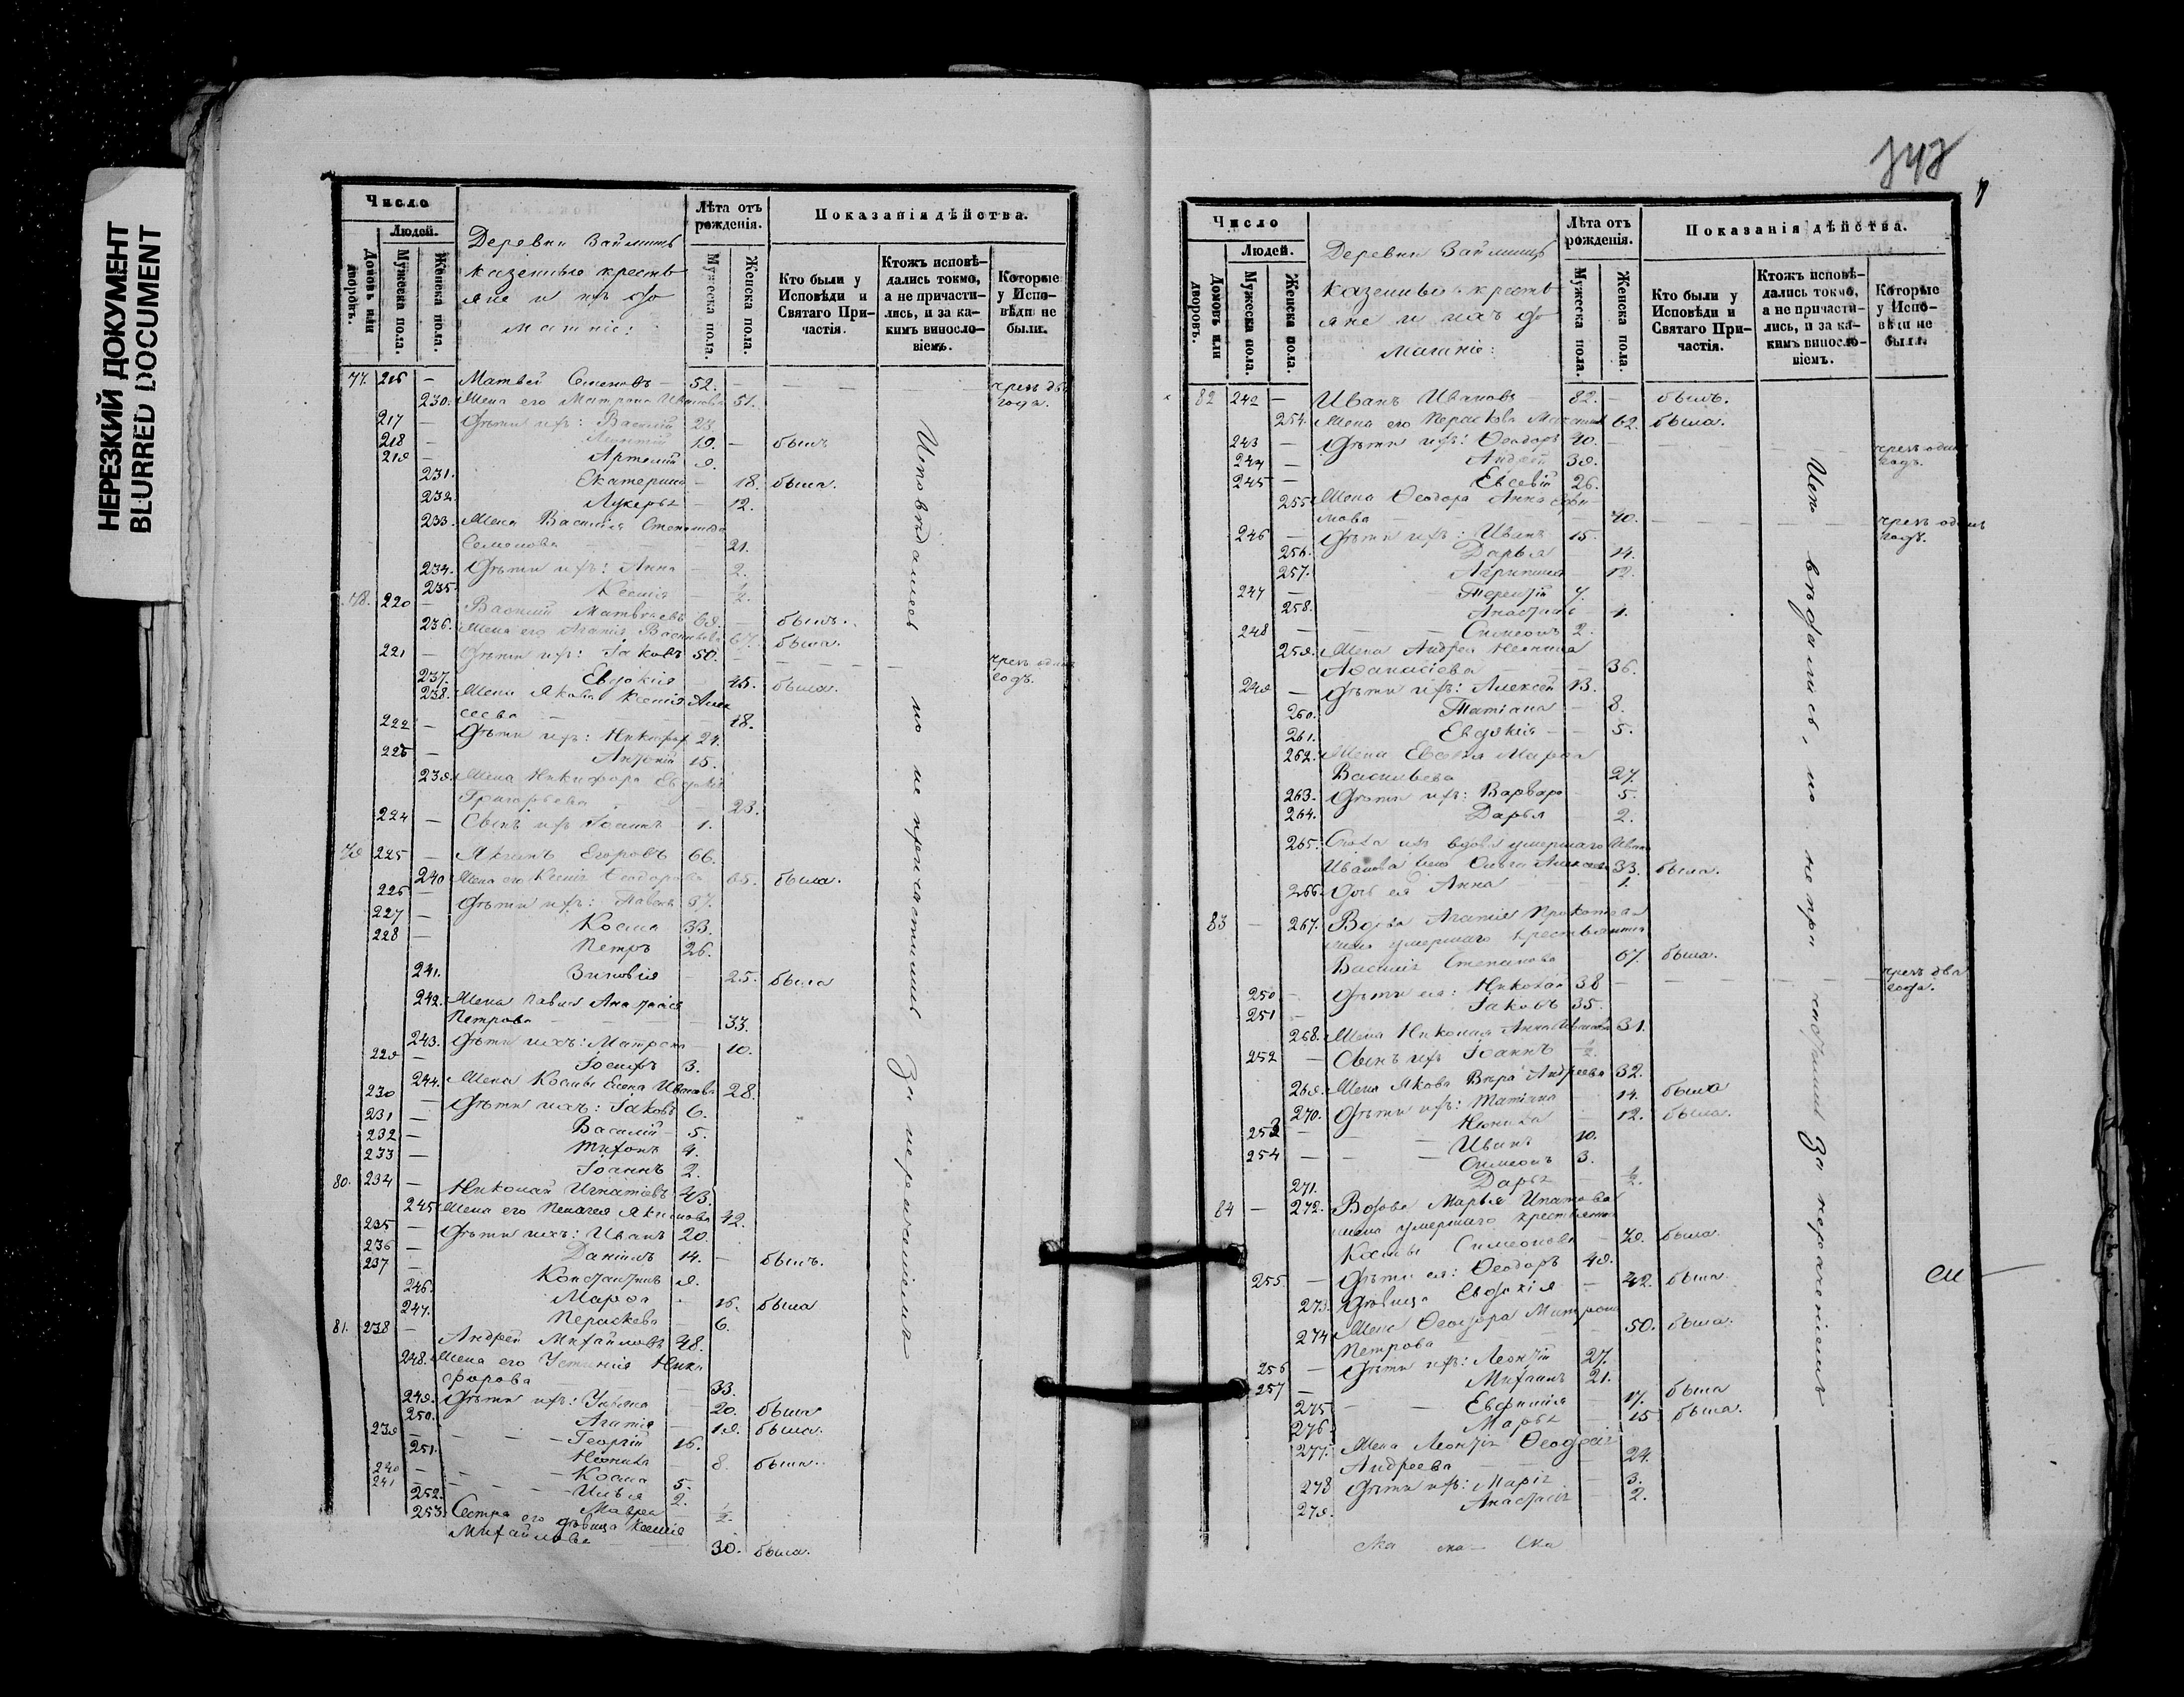 НЕРЕЗКИЙ ДОКУМЕНТ
BLURRED DOCUMENT
Число
Людей.
Домовъ или дворовъ.
Мужеска пола.
Женска пола.
Деревни Займищъ
казенные кресть
яне и ихъ до
машніе:
Лѣта отъ рожденія.
Мужеска пола.
Женска пола.
Показанія дѣйства.
Кто были у Исповѣди и Святаго Причастія.
Ктожъ исповѣдались токмо, а не причастились, и за какимъ винословіемъ.
Которые у Исповѣди не были.
77. 216 — Матвей Семеновъ — 52. — чрезъ два года.
230. Жена его Матрона Иванова 51.
217 — Дѣти ихъ: Василій 23.
218 — 19. — былъ
219 Артемій 9.
231. Екатерина — 18. была.
232. Лукерья — 12.
233. Жена Василія Степанида
Семенова 21.
234. Дѣти ихъ: Анна — 2.
235. Ксенія — ½.
78. 220 — Василій Матвѣевъ 69. — былъ.
236. Жена его Агапія Васильева 67. была.
221 — Дѣти ихъ: Іаковъ 50. — чрезъ одинъ годъ.
237. Евдокія — 45. была.
238. Жена Якова Ксенія Алек
сеева 48.
222 — Дѣти ихъ: Никифоръ 24.
223 — Антоній 15.
239. Жена Никифора Евдокія
Григорьева 23.
224 — Сынъ ихъ Іоаннъ — 1.
79 225 — Якимъ Егоровъ 66.
240 Жена его Ксенія Ѳеодорова 65. была.
226 — Дѣти ихъ: Павелъ 37.
227 — Косма 33.
228 — Петръ 26.
241. Зиновія — 25. была
242. Жена Павла Анастасія
Петрова — 33.
243. Дѣти ихъ: Матрона — 10.
229 — Іосифъ 3.
244. Жена Космы Елена Иванова 28.
230 — Дѣти ихъ: Іаковъ 6.
231 — Василій — 5.
232 — Тихонъ 4.
233 — Іоаннъ 2.
80. 234 — Николай Игнатіевъ 43.
245 Жена его Пелагея Якимова 42.
235 — Дѣти ихъ: Иванъ 20.
236 — Даніилъ 14. — былъ.
237 — Константинъ 9.
246. Марфа — 16. была
247. Параскева — 6.
81. 238 — Андрей Михайловъ 48.
248. Жена его Устинія Ники
форова 33.
249. Дѣти ихъ: 20. была
250. Агапія — 19. была.
239 — Георгій 16.
251. Неонила — 8. была.
240 — Косма 5.
241 — Илья 2.
252. Мавра — ½.
253. Сестра его дѣвица Ксенія
Михайлова 30. была.
Исповѣдались но не причастились За нераченіемъ
Число
Людей.
Домовъ или дворовъ.
Мужеска пола.
Женска пола.
Деревни Займищъ
казенные кресть
яне и ихъ до
машніе:
Лѣта отъ рожденія.
Мужеска пола.
Женска пола.
Показанія дѣйства.
Кто были у Исповѣди и Святаго Причастія.
Ктожъ исповѣдались токмо, а не причастились, и за какимъ винословіемъ.
Которые у Исповѣди не были.
82 242 — Иванъ Ивановъ 82. — былъ.
254. Жена его Параскева 62. была.
243 — Дѣти ихъ: Ѳеодоръ 40. — чрезъ одинъ годъ.
244 — Андрей 39.
245 — Евсевій 26.
255 Жена Ѳеодора Анна
мова 40. — чрезъ одинъ годъ.
246 — Дѣти ихъ: Иванъ 15.
256. Дарья 14.
257. Агрипина 12.
247 — Терентій 7.
258. Анастасія 4.
248 — Симеонъ 2.
259. Жена Андрея Неонила
Аѳанасіева 36.
249 — Дѣти ихъ: Алексей 13.
260. Татіана — 8.
261. Евдокія — 5.
262. Жена Евсевія Марфа
Васильева 27.
263. Дѣти ихъ: Варвара — 5.
264. Дарья — 2.
265. Сноха ихъ вдова умершаго Ивана
Иванова жена Ольга Алексеева 33. была.
266. Дочь ея Анна 1.
83 — 267. Вдова Агапія Прокопіева
жена умершаго крестьянина
Василія Степанова 67. была.
250 — Дѣти ея: Николай 38 — чрезъ два года.
251 — Іаковъ 35.
268. Жена Николая Анна 31.
252 — Сынъ ихъ Іоаннъ ½.
269. Жена Якова Вѣра Андреева 32.
270. Дѣти ихъ: Татіана 14. была
Неонила 12. была.
253 — Иванъ 10.
254 — Симеонъ 3.
271. Дарья ½.
84 — 272. Вдова Марья Ипатова
жена умершаго крестьянина
Космы Симеонова — 79. была.
255. — Дѣти ея: Ѳеодоръ 49.
273. Дѣвица Евдокія — 42. была.
274 Жена Ѳеодора Матрона
Петрова 50. была.
256 — Дѣти ихъ: Леонтій 27.
257 — Михаилъ 21.
275 Евфимія 17. была
276 Марья — 15 была.
277. Жена Леонтія Ѳеодосія
Андреева 24.
278 Дѣти ихъ: Марія — 3.
279. Анастасія 2.
Исповѣдались, но не причастились За нераченіемъ